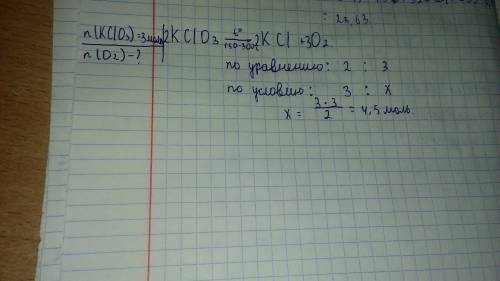 = 22,63
n(KClO3)=3моль 2KClO3 t° 150-300 2KCl +3O2
n(O2)-?
по уравнению: 2 : 3
по условию: 3 : x
x = 3·3/2 = 4,5 моль.